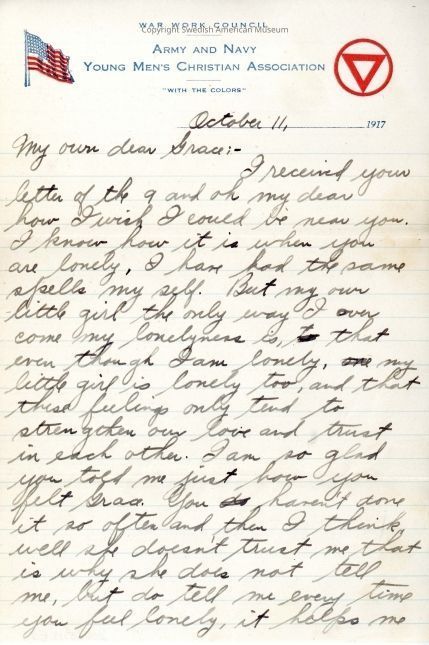 WAR WORK COUNCIL
Copyright Swedish American Museum
ARMY AND NAVY
YOUNG MEN'S CHRISTIAN ASSOCIATION
"WITH THE COLORS"
October 11, 1917
My own dear Grace:-
I received your
letter of the 9 and oh my dear
how I wish I could be near you.
I know how it is when you
are lonely, I have had the same
spells my self. But my own
little girl the only way I over
come my lonelyness is, that
even though I am lonely, my
little girl is lonely too, and that
these feelings only tend to
strengthen our love and trust
in each other. I am so glad
you told me just how you
felt Grace. You haven't done
it so often and then I think
well she doesn't trust me that
is why she does not tell
me, but do tell me every time
you feel lonely, it helps me